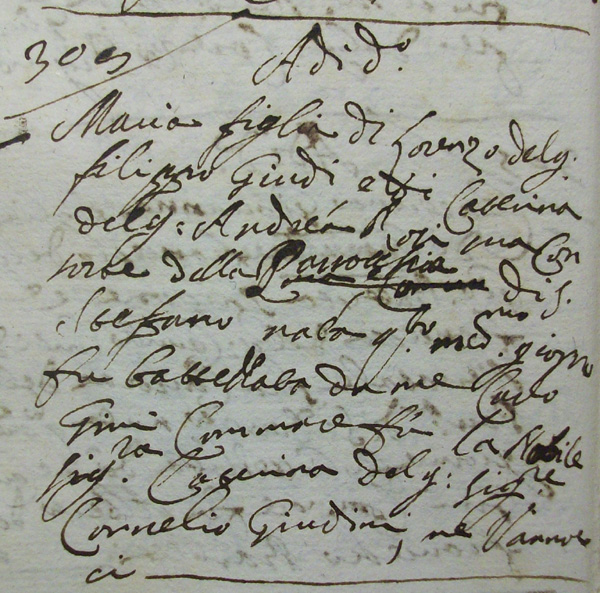 309 Adi d.º
Maria figlia di Lorenzo del q.
filippo Giudi e di Caterina
del q: Andrea Rosi sua Con
sorte della Parrochia di S.
Stefano nata q.to med.mo giorno
fu battezzata da me Curo
Gini Commare fu la Nobile
Sig.ra Caterina del q: Sig.re
Cornelio Giudini, ne Vannoc
ci